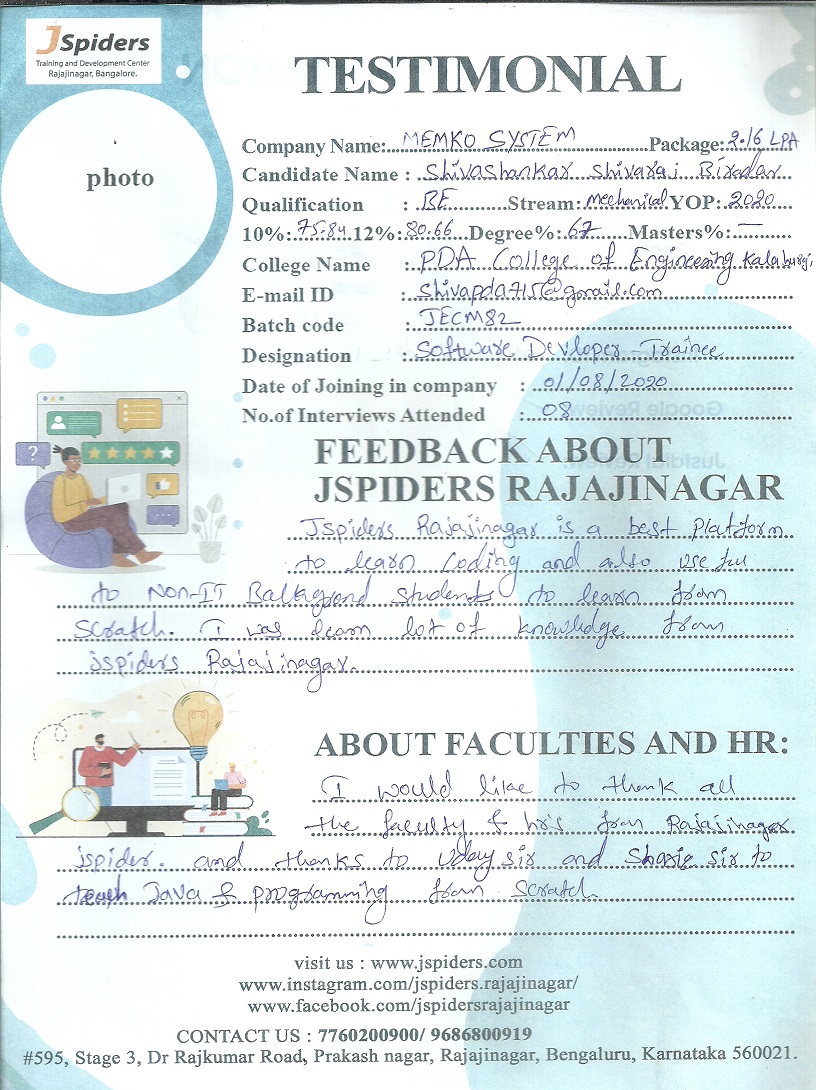 JSpiders
Training and Development Center
Rajajinagar, Bangalore.
TESTIMONIAL
photo
Company Name: MEMKO SYSTEM Package: 2.16 LPA
Candidate Name : Shivashankar Shivaraj Biradar
Qualification : BE Stream: Mechanical YOP: 2020
10%: 75.84 12%: 80.66 Degree%: 67 Masters%: —
College Name : PDA College of Engineering Kalaburgi,
E-mail ID : shivapda715@gmail.com
Batch code : JECM82
Designation : Software Devloper Trainee
Date of Joining in company : 01/08/2020
No.of Interviews Attended : 08
FEEDBACK ABOUT
JSPIDERS RAJAJINAGAR
Jspiders Rajajinagar is a best Platform
to learn Coding and also useful
to Non-IT Backgrond students to learn from
scratch. I was learn lot of knowledge from
jspiders Rajajinagar.
ABOUT FACULTIES AND HR:
I would like to thank all
the faculty & hr's from Rajajinagar
jspider. and thanks to Uday sir and sir to
teach Java & programming from scratch
visit us : www.jspiders.com
www.instagram.com/jspiders.rajajinagar/
www.facebook.com/jspidersrajajinagar
CONTACT US : 7760200900/ 9686800919
#595, Stage 3, Dr Rajkumar Road, Prakash nagar, Rajajinagar, Bengaluru, Karnataka 560021.